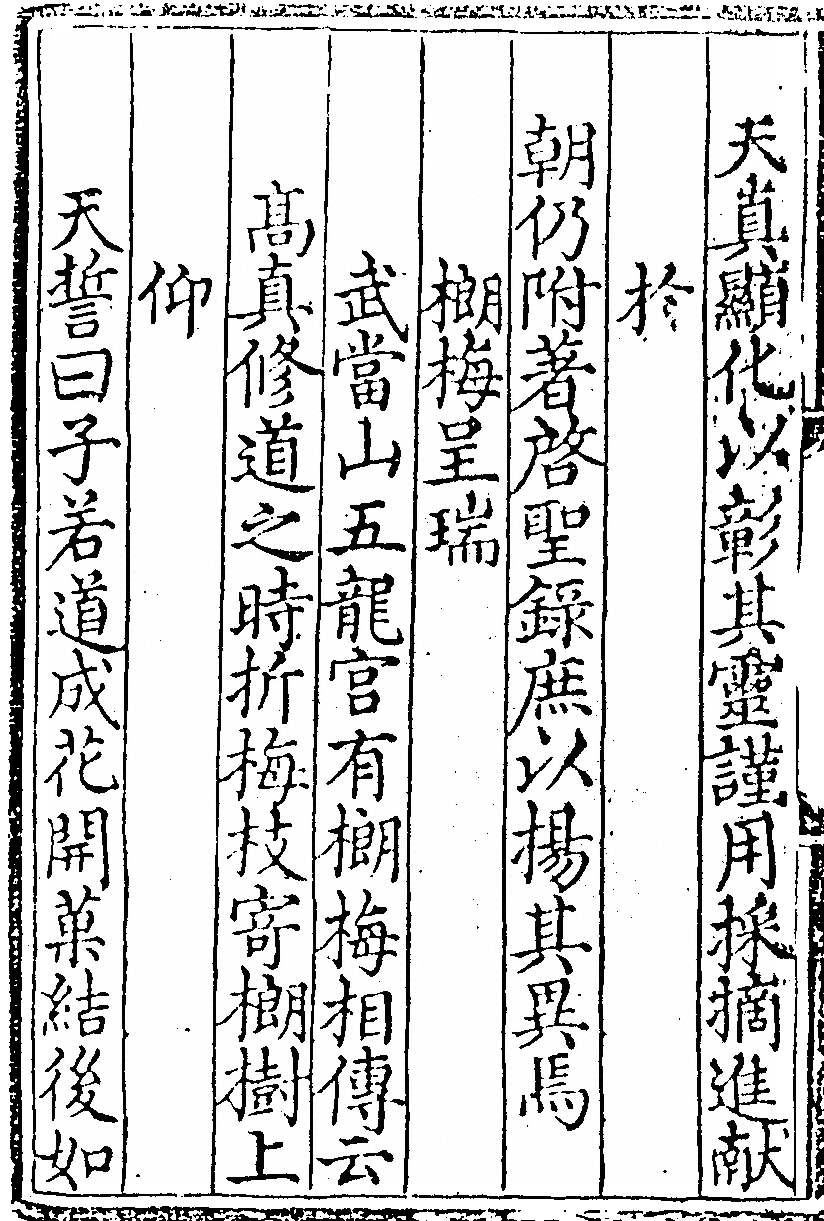 天真顯化以彰其靈謹用採摘進献
於
朝仍附著啓聖錄庶以揚其異焉
榔梅呈瑞
武當山五龍宫有榔梅相傳云
髙真修道之時折梅枝寄榔樹上
仰
天誓曰子若道成花開菓結後如